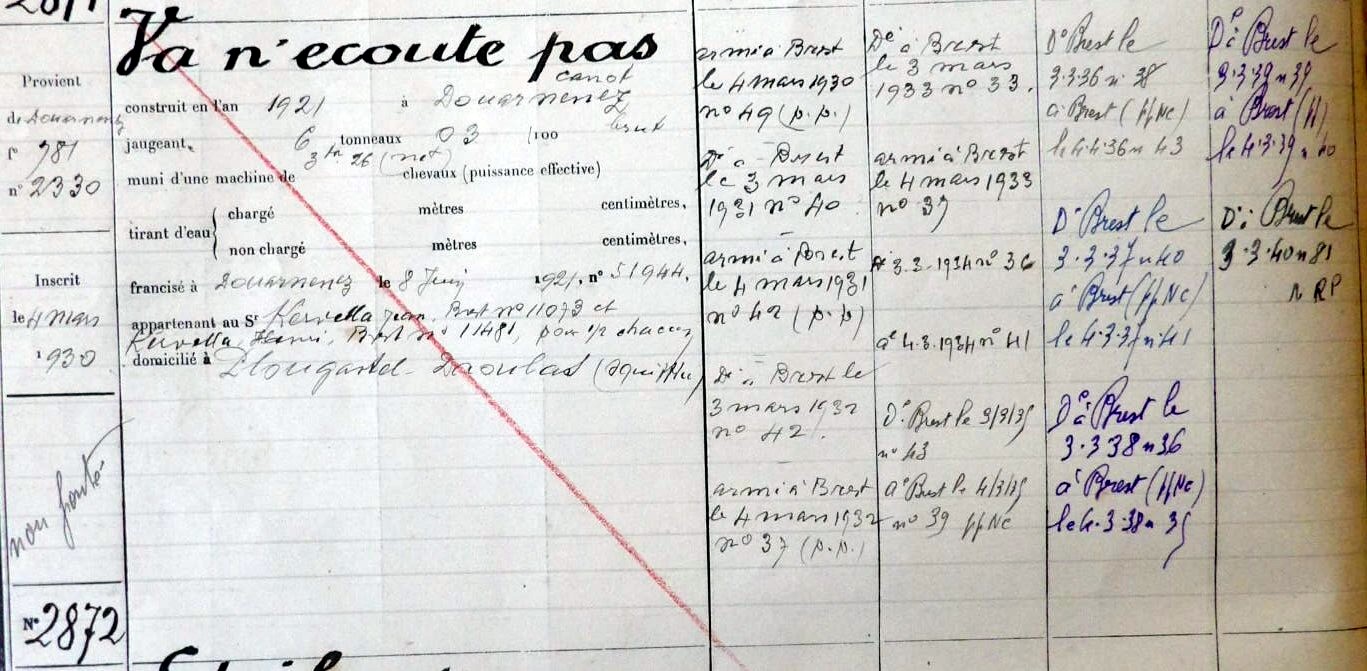 Va n'ecoute pas
Provient
de Douarnenez
f° 781
n° 2330
Inscrit
le 4 mars
1930
non ponté
N° 2872
canot
construit en l'an 1921 à Douarnenez
jaugeant, 6 tonneaux 03 /100 brut
3 tx 26 (net)
muni d'une machine de chevaux (puissance effective)
tirant d'eau
chargé mètres centimètres,
non chargé mètres centimètres,
francisé à Douarnenez le 8 Juin 1921, n° 51944,
appartenant au Sr Kervella Jean, Brest n° 11073 et
Kervella Henri, Brest n° 11481, pour 1/2 chacun
domicilié à Plougastel-Daoulas
armé à Brest
le 4 mars 1930
n° 49 (p.p.)
Dé à Brest
le 3 mars
1931 n° 40.
armé à Brest
le 4 mars 1931
n° 42 (p.p)
Dé à Brest le
3 mars 1932
n° 42.
armé à Brest
le 4 mars 1932
n° 37 (p.p.)
Dé à Brest
le 3 mars
1933 n° 33.
armé à Brest
le 4 mars 1933
n° 37
Dé 3.3.1934 n° 36
aé 4.3.1934 n° 41
Dé Brest le 3/3/35
n° 43
aé Brest le 4/3/35
n° 39 ppNc
Dé Brest le
3.3.36 n 38
à Brest (ppNc)
le 4.4.36 n 43
Dé Brest le
3.3.37 n 40
à Brest (ppNc)
le 4.3.37 n 41
Dé à Brest le
3.3.38 n 36
à Brest (ppNc)
le 4.3.38 n 35
Dé à Brest le
3.3.39 n 39
à Brest
le 4.3.39 n 40
Dé à Brest le
3.3.40 n 81
RP